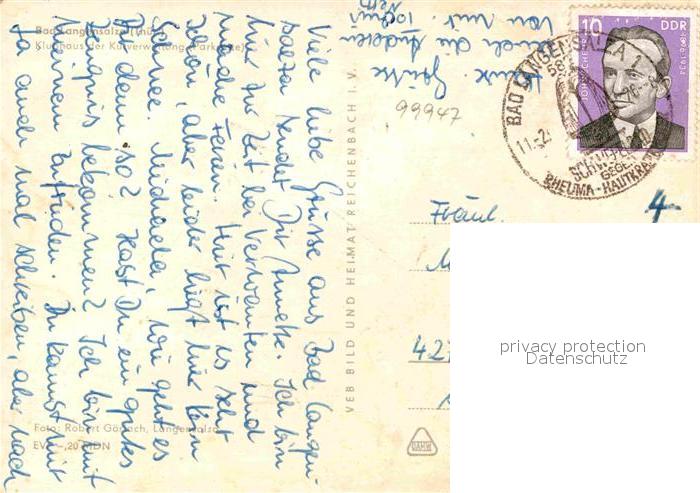 Bad Langensalza (Thür.)
Klubhaus der Kurverwaltung (Parkseite)
Viele liebe Grüsse aus Bad Langen-
salza sendet Dir Annett. Ich bin
hier zur Zeit bei Verwanten und
mache Ferien. Hier ist es sehr
schön, aber leider liegt hier kein
Schnee. Michaela, wie geht es
Dir denn so? Hast Du ein gutes
Zeugnis bekommen? Ich bin mit
meinem zufrieden. Du kannst mir
ja auch mal schreiben, aber nach
Hause. Grüße
auch die anderen
von mir
Foto: Robert Görlach, Langensalza
EVP -,20 MDN
VEB BILD UND HEIMAT REICHENBACH I. V.
99947
10 DDR
BAD LANGENSALZA 1
582
11.-2.
GEGEN
RHEUMA-HAUTKRA
4-
Fräul.
M
427
privacy protection
Datenschutz